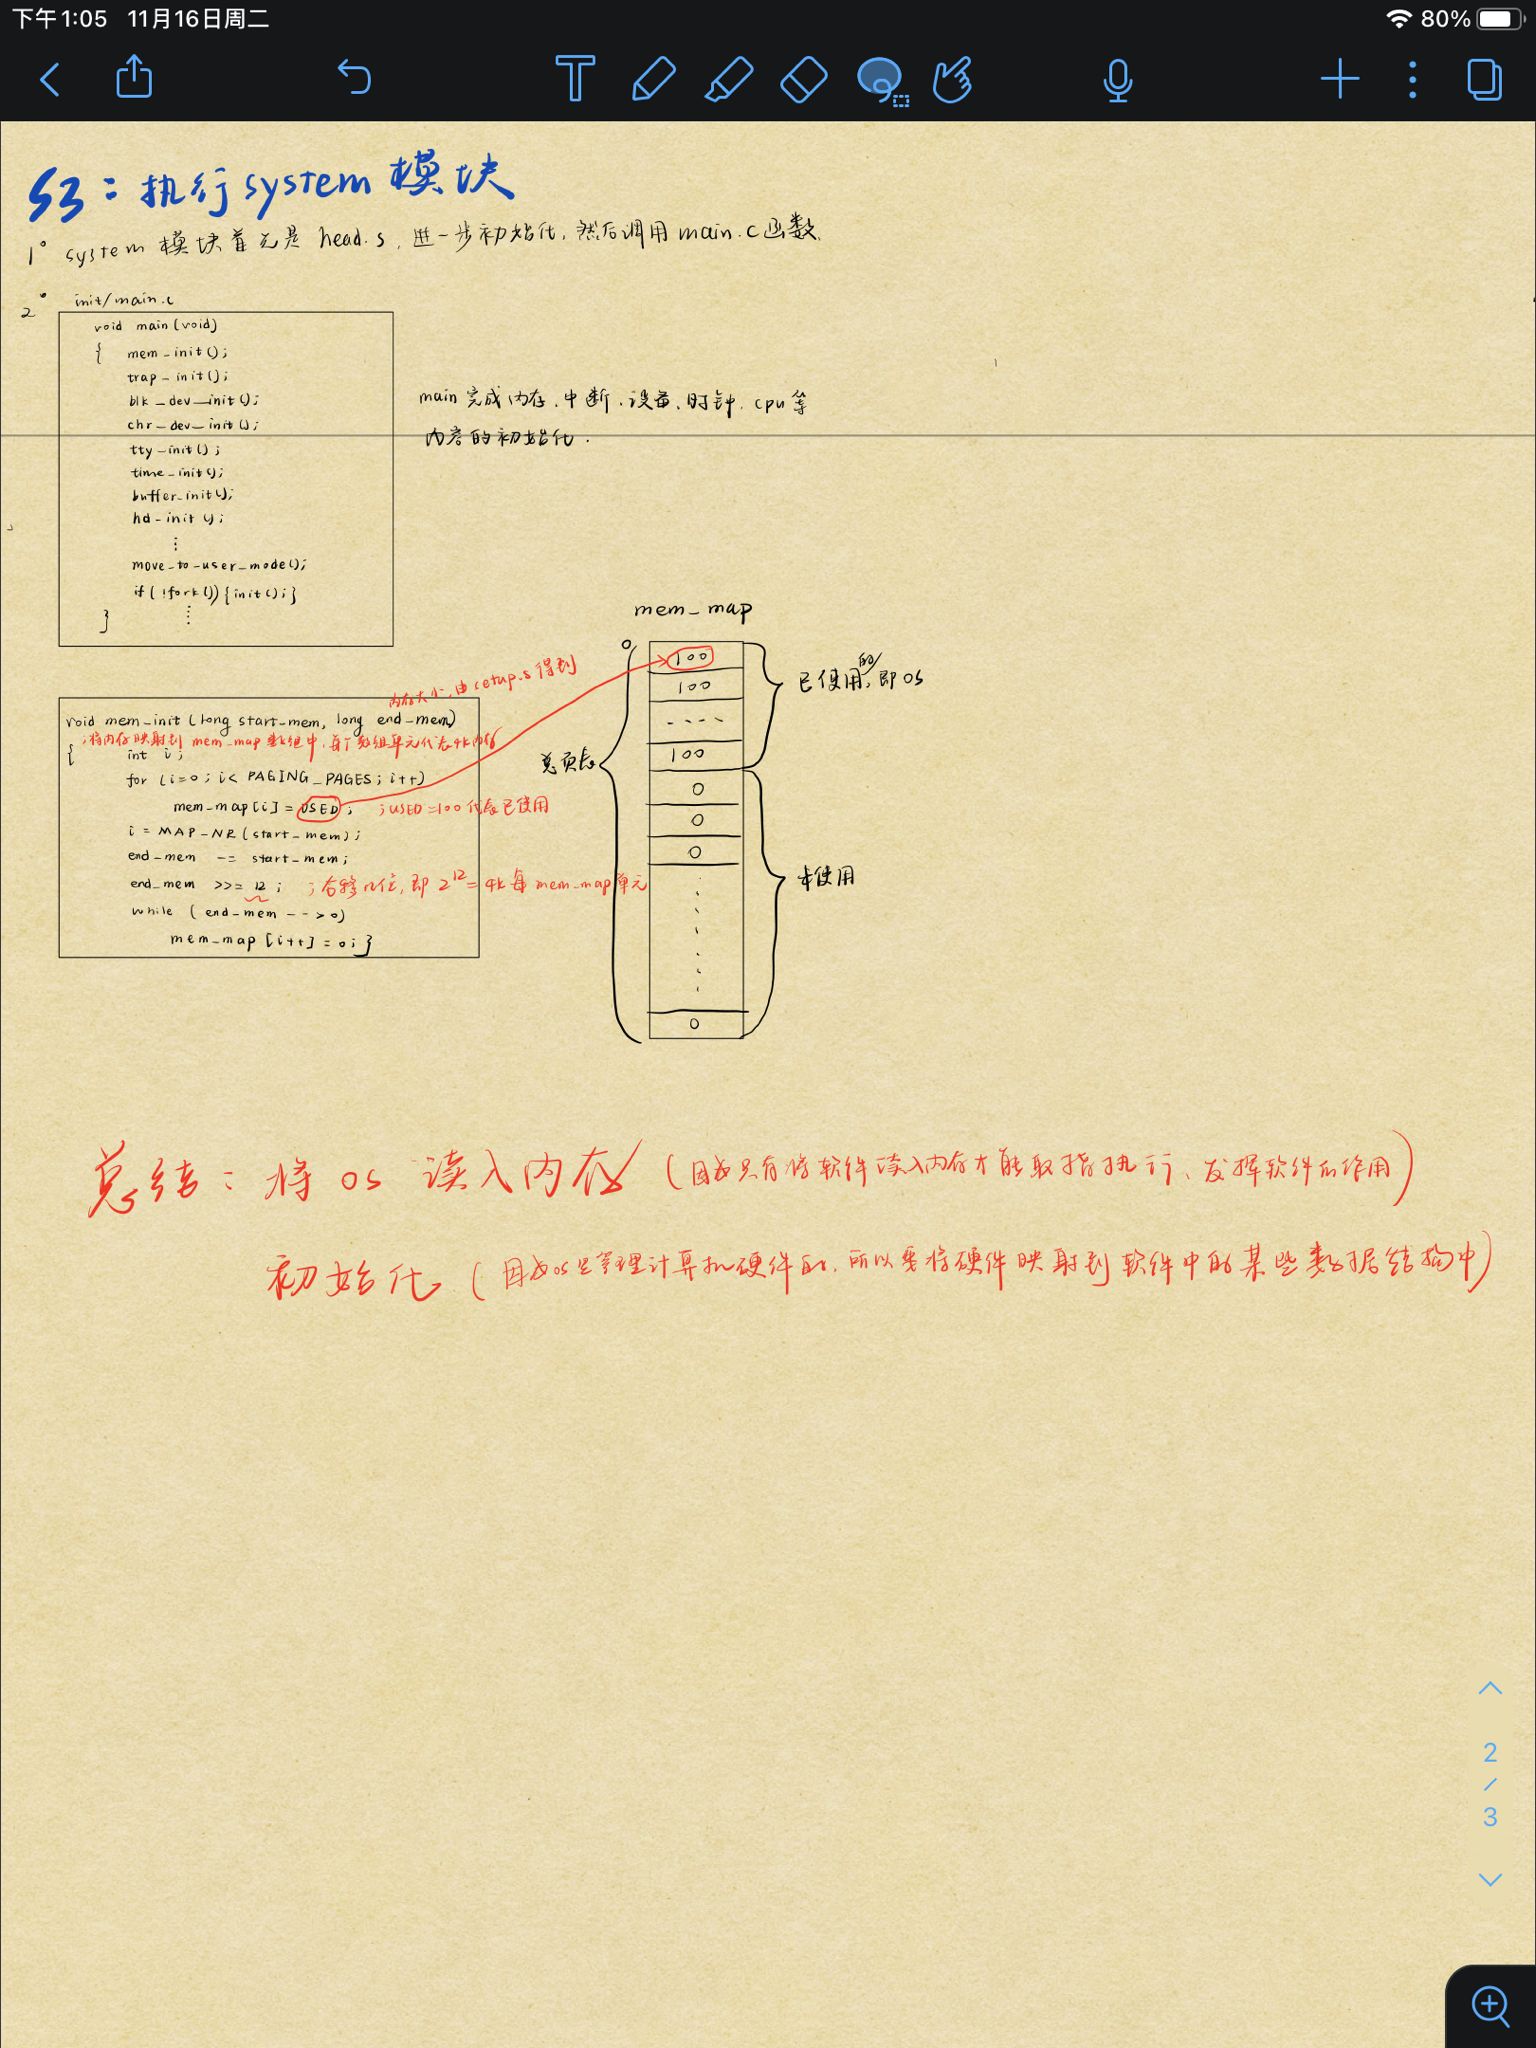 下午1:05 11月16日周二
80%
S3：执行system模块
1° system 模块首先是 head.s，进一步初始化，然后调用main.c函数.
2° init/main.c
void main(void)
{ mem_init();
trap_init();
blk_dev_init();
chr_dev_init();
tty_init();
time_init();
buffer_init();
hd_init();
⋮
move_to_user_mode();
if(!fork()){init();}
} ⋮
main完成内存、中断、设备、时钟、cpu等
内容的初始化.
内存大小,由setup.s得到
void mem_init(long start_mem, long end_mem)
;将内存映射到 mem_map数组中,每个数组单元代表4k内存
{ int i;
for (i=0; i< PAGING_PAGES; i++)
mem_map[i] = USED; ;USED=100代表已使用
i = MAP_NR(start_mem);
end_mem -= start_mem;
end_mem >>= 12; ;右移12位,即2^12=4k每mem_map单元
while (end_mem-->0)
mem_map[i++]=0;}
mem_map
0
100
100
----
100
0
0
0
0
总页表
已使用的,即OS
未使用
总结：将os读入内存(因为只有将软件读入内存才能取指执行、发挥软件的作用)
初始化(因为os是管理计算机硬件的,所以要将硬件映射到软件中的某些数据结构中)
2
/
3